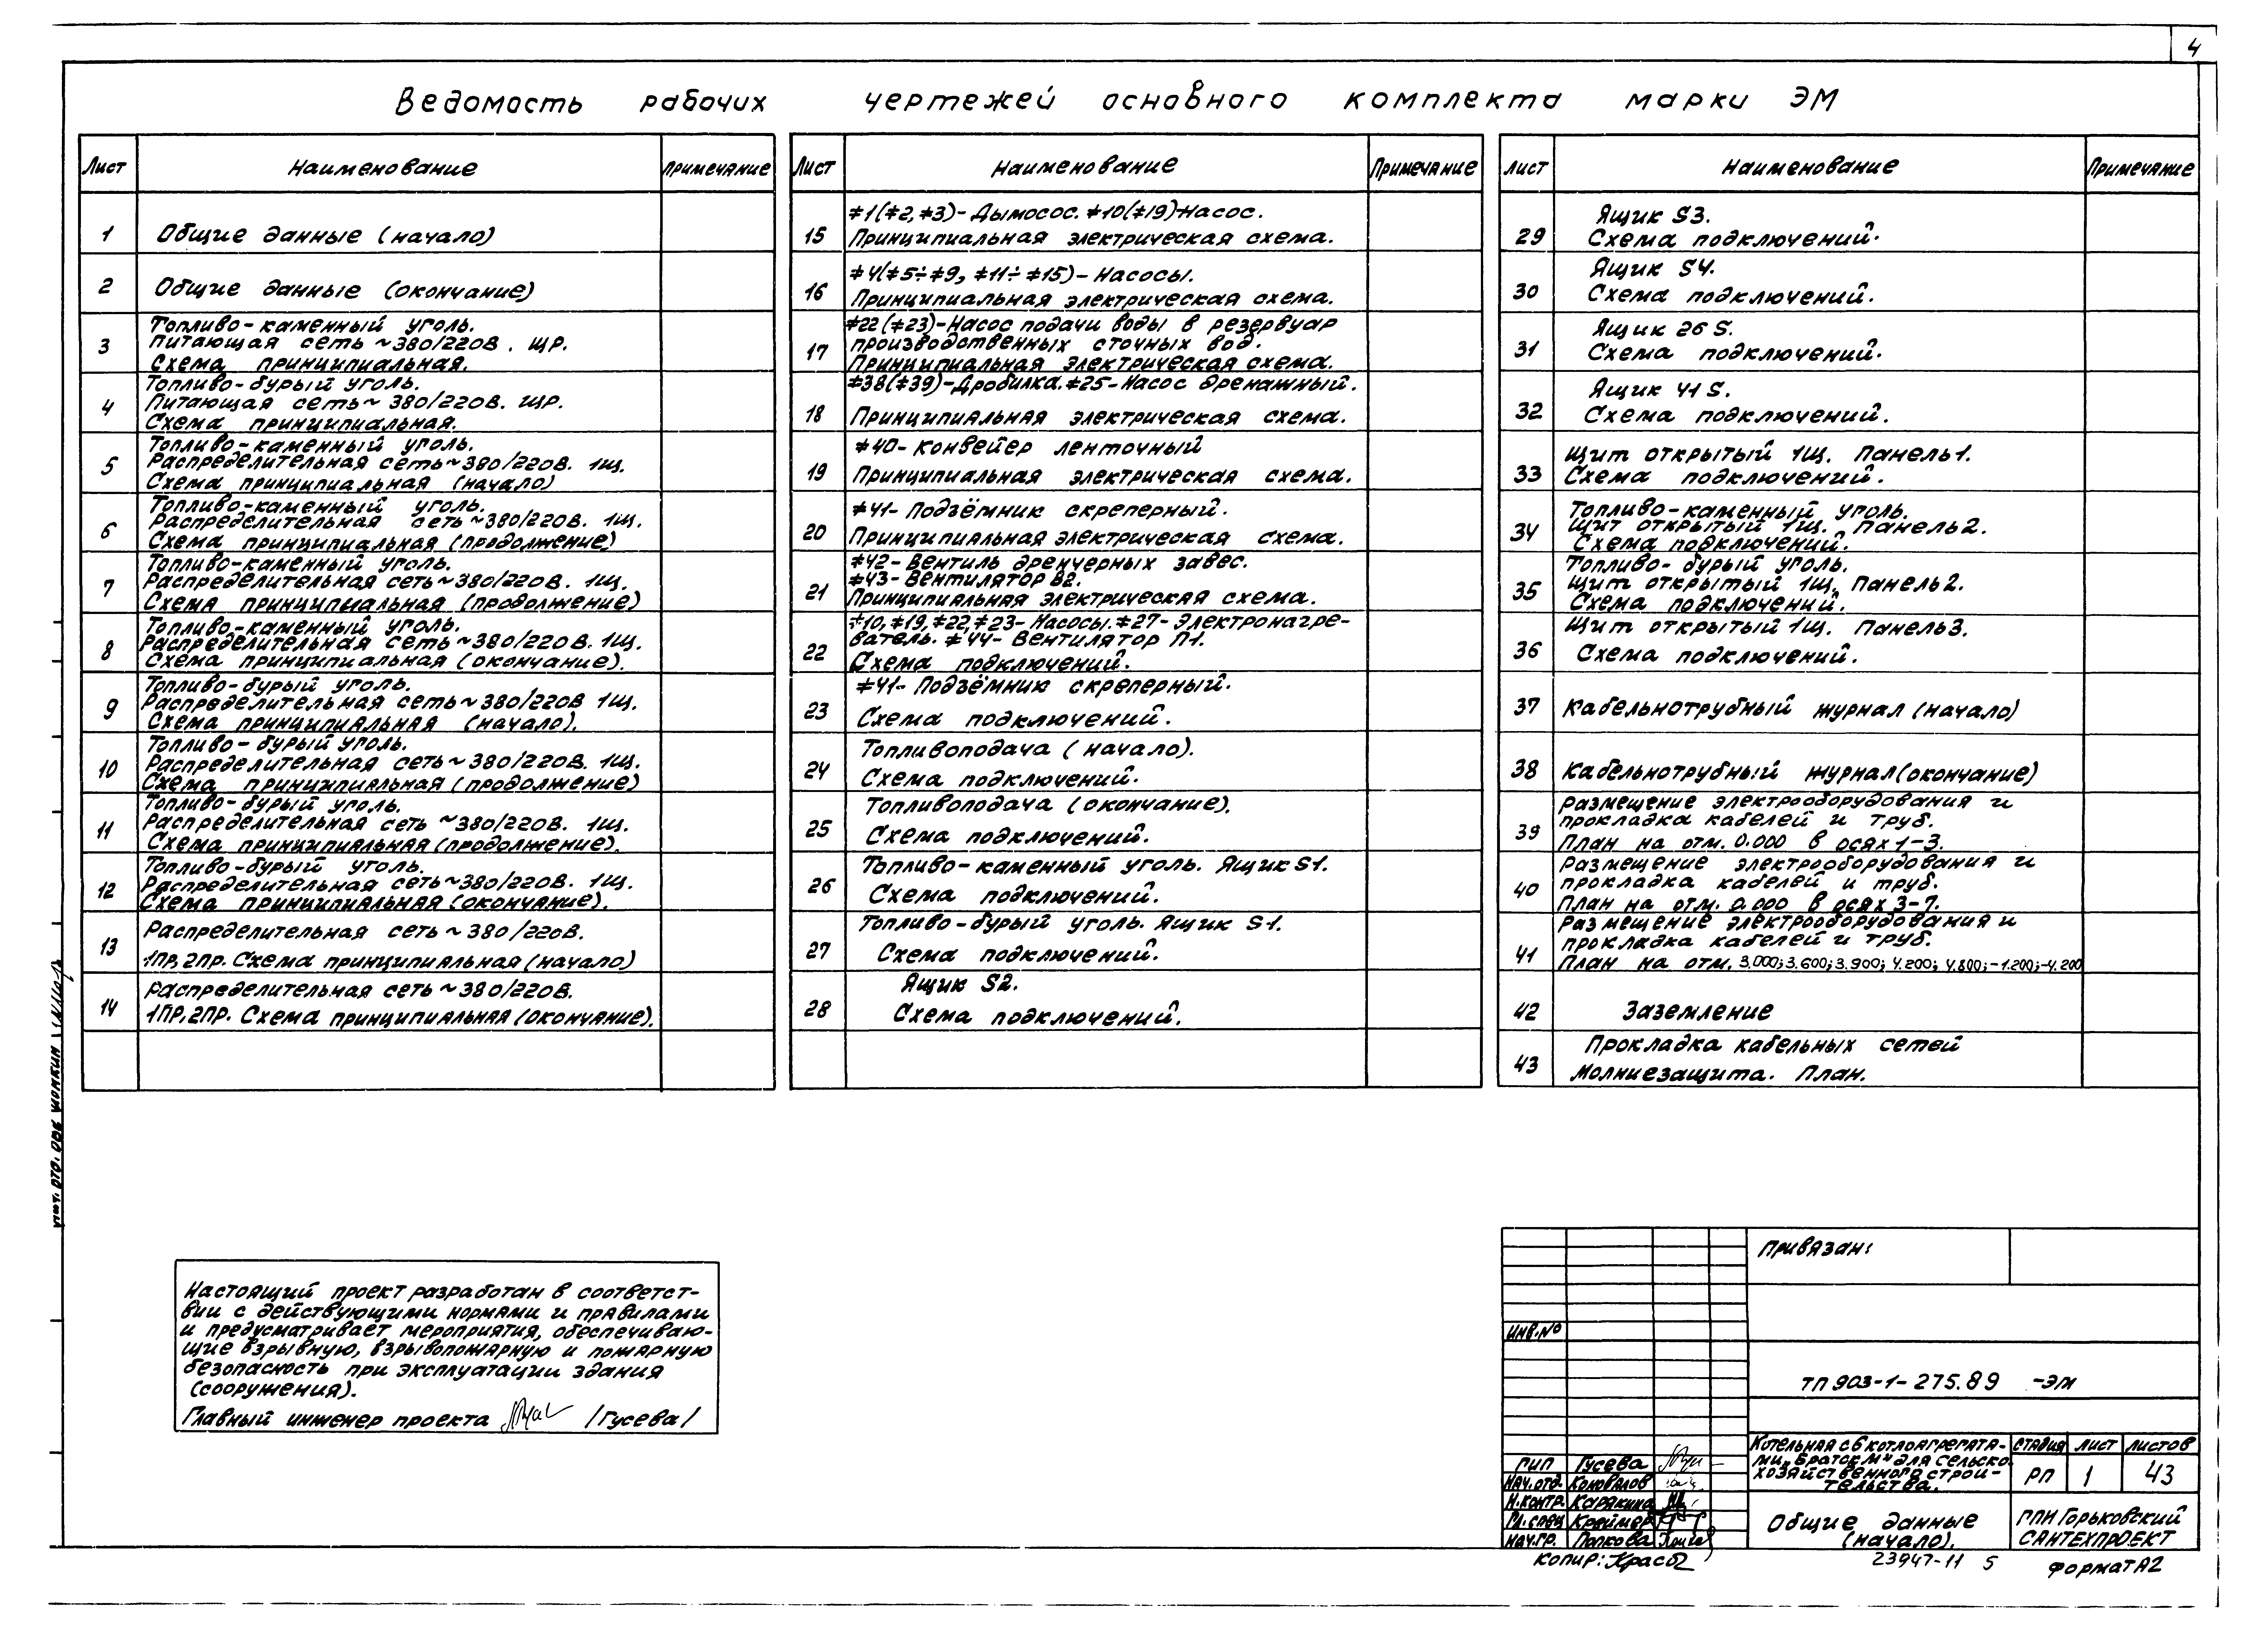 4
Ведомость рабочих чертежей основного комплекта марки ЭМ
Лист Наименование Примечание
1 Общие данные (начало)
2 Общие данные (окончание)
Топливо-каменный уголь.
3 Питающая сеть ~380/220В. ЩР.
Схема принципиальная.
Топливо-бурый уголь.
4 Питающая сеть ~ 380/220В. ЩР.
Схема принципиальная.
Топливо-каменный уголь.
5 Распределительная сеть ~380/220В. 1Щ.
Схема принципиальная (начало)
Топливо-каменный уголь.
6 Распределительная сеть ~380/220В. 1Щ.
Схема принципиальная (продолжение)
Топливо-каменный уголь.
7 Распределительная сеть ~380/220В. 1Щ.
Схема принципиальная (продолжение)
Топливо-каменный уголь.
8 Распределительная сеть ~380/220В. 1Щ.
Схема принципиальная (окончание).
Топливо-бурый уголь.
9 Распределительная сеть ~380/220В 1Щ.
Схема принципиальная (начало).
Топливо-бурый уголь.
10 Распределительная сеть ~380/220В. 1Щ.
Схема принципиальная (продолжение)
Топливо-бурый уголь.
11 Распределительная сеть ~380/220В. 1Щ.
Схема принципиальная (продолжение).
Топливо-бурый уголь.
12 Распределительная сеть ~380/220В. 1Щ.
Схема принципиальная (окончание).
13 Распределительная сеть ~ 380/220В.
1ПР, 2ПР. Схема принципиальная (начало)
14 Распределительная сеть ~380/220В.
1ПР, 2ПР. Схема принципиальная (окончание).
Лист Наименование Примечание
≠1(≠2, ≠3)- Дымосос. ≠10(≠19)-Насос.
15 Принципиальная электрическая схема.
≠4(≠5÷≠9, ≠11÷≠15)- Насосы.
16 Принципиальная электрическая схема.
≠22(≠23)-Насос подачи воды в резервуар
17 производственных сточных вод.
Принципиальная электрическая схема.
≠38(≠39)-Дробилка. ≠25-Насос дренажный.
18 Принципиальная электрическая схема.
≠40- Конвейер ленточный
19 Принципиальная электрическая схема.
≠41- Подъёмник скреперный.
20 Принципиальная электрическая схема.
≠42- Вентиль дренчерных завес.
21 ≠43- Вентилятор В2.
Принципиальная электрическая схема.
≠10, ≠19, ≠22, ≠23- Насосы. ≠27- Электронагре-
22 ватель. ≠44- Вентилятор П1.
Схема подключений.
≠41- Подъёмник скреперный.
23 Схема подключений.
Топливоподача (начало).
24 Схема подключений.
Топливоподача (окончание).
25 Схема подключений.
Топливо-каменный уголь. Ящик S1.
26 Схема подключений.
Топливо-бурый уголь. Ящик S1.
27 Схема подключений.
Ящик S2.
28 Схема подключений.
Лист Наименование Примечание
Ящик S3.
29 Схема подключений.
Ящик S4.
30 Схема подключений.
Ящик 26 S.
31 Схема подключений.
Ящик 41 S.
32 Схема подключений.
Щит открытый 1Щ. Панель1.
33 Схема подключений.
Топливо-каменный уголь.
34 Щит открытый 1Щ. Панель2.
Схема подключений.
Топливо-бурый уголь.
35 Щит открытый 1Щ. Панель2.
Схема подключений.
Щит открытый 1Щ. Панель3.
36 Схема подключений.
37 Кабельнотрубный журнал (начало)
38 Кабельнотрубный журнал (окончание)
Размещение электрооборудования и
39 прокладка кабелей и труб.
План на отм. 0.000 в осях 1-3.
Размещение электрооборудования и
40 прокладка кабелей и труб.
План на отм. 0.000 в осях 3-7.
Размещение электрооборудования и
41 прокладка кабелей и труб.
План на отм. 3.000; 3.600; 3.900; 4.200; 4.800; -1.200; -4.200
42 Заземление
Прокладка кабельных сетей
43 Молниезащита. План.
Нач. отд. ОВК Шонкин
Настоящий проект разработан в соответст-
вии с действующими нормами и правилами
и предусматривает мероприятия, обеспечиваю-
щие взрывную, взрывопожарную и пожарную
безопасность при эксплуатации здания
(сооружения).
Главный инженер проекта /Гусева/
Привязан:
Инв.№
ТП 903-1-275.89 -ЭМ
Котельная с 6 котлоагрегата-
ми „Братск М" для сельско
хозяйственного строи-
тельства.
Стадия Лист Листов
РП 1 43
ГИП Гусева
Нач.отд. Коновалов
Н.контр. Карякина
Гл.спец Креймер
Нач.гр. Попкова
Общие данные
(начало).
ГПИ Горьковский
САНТЕХПРОЕКТ
Копир: Красо
23947-11 5
Формат А2